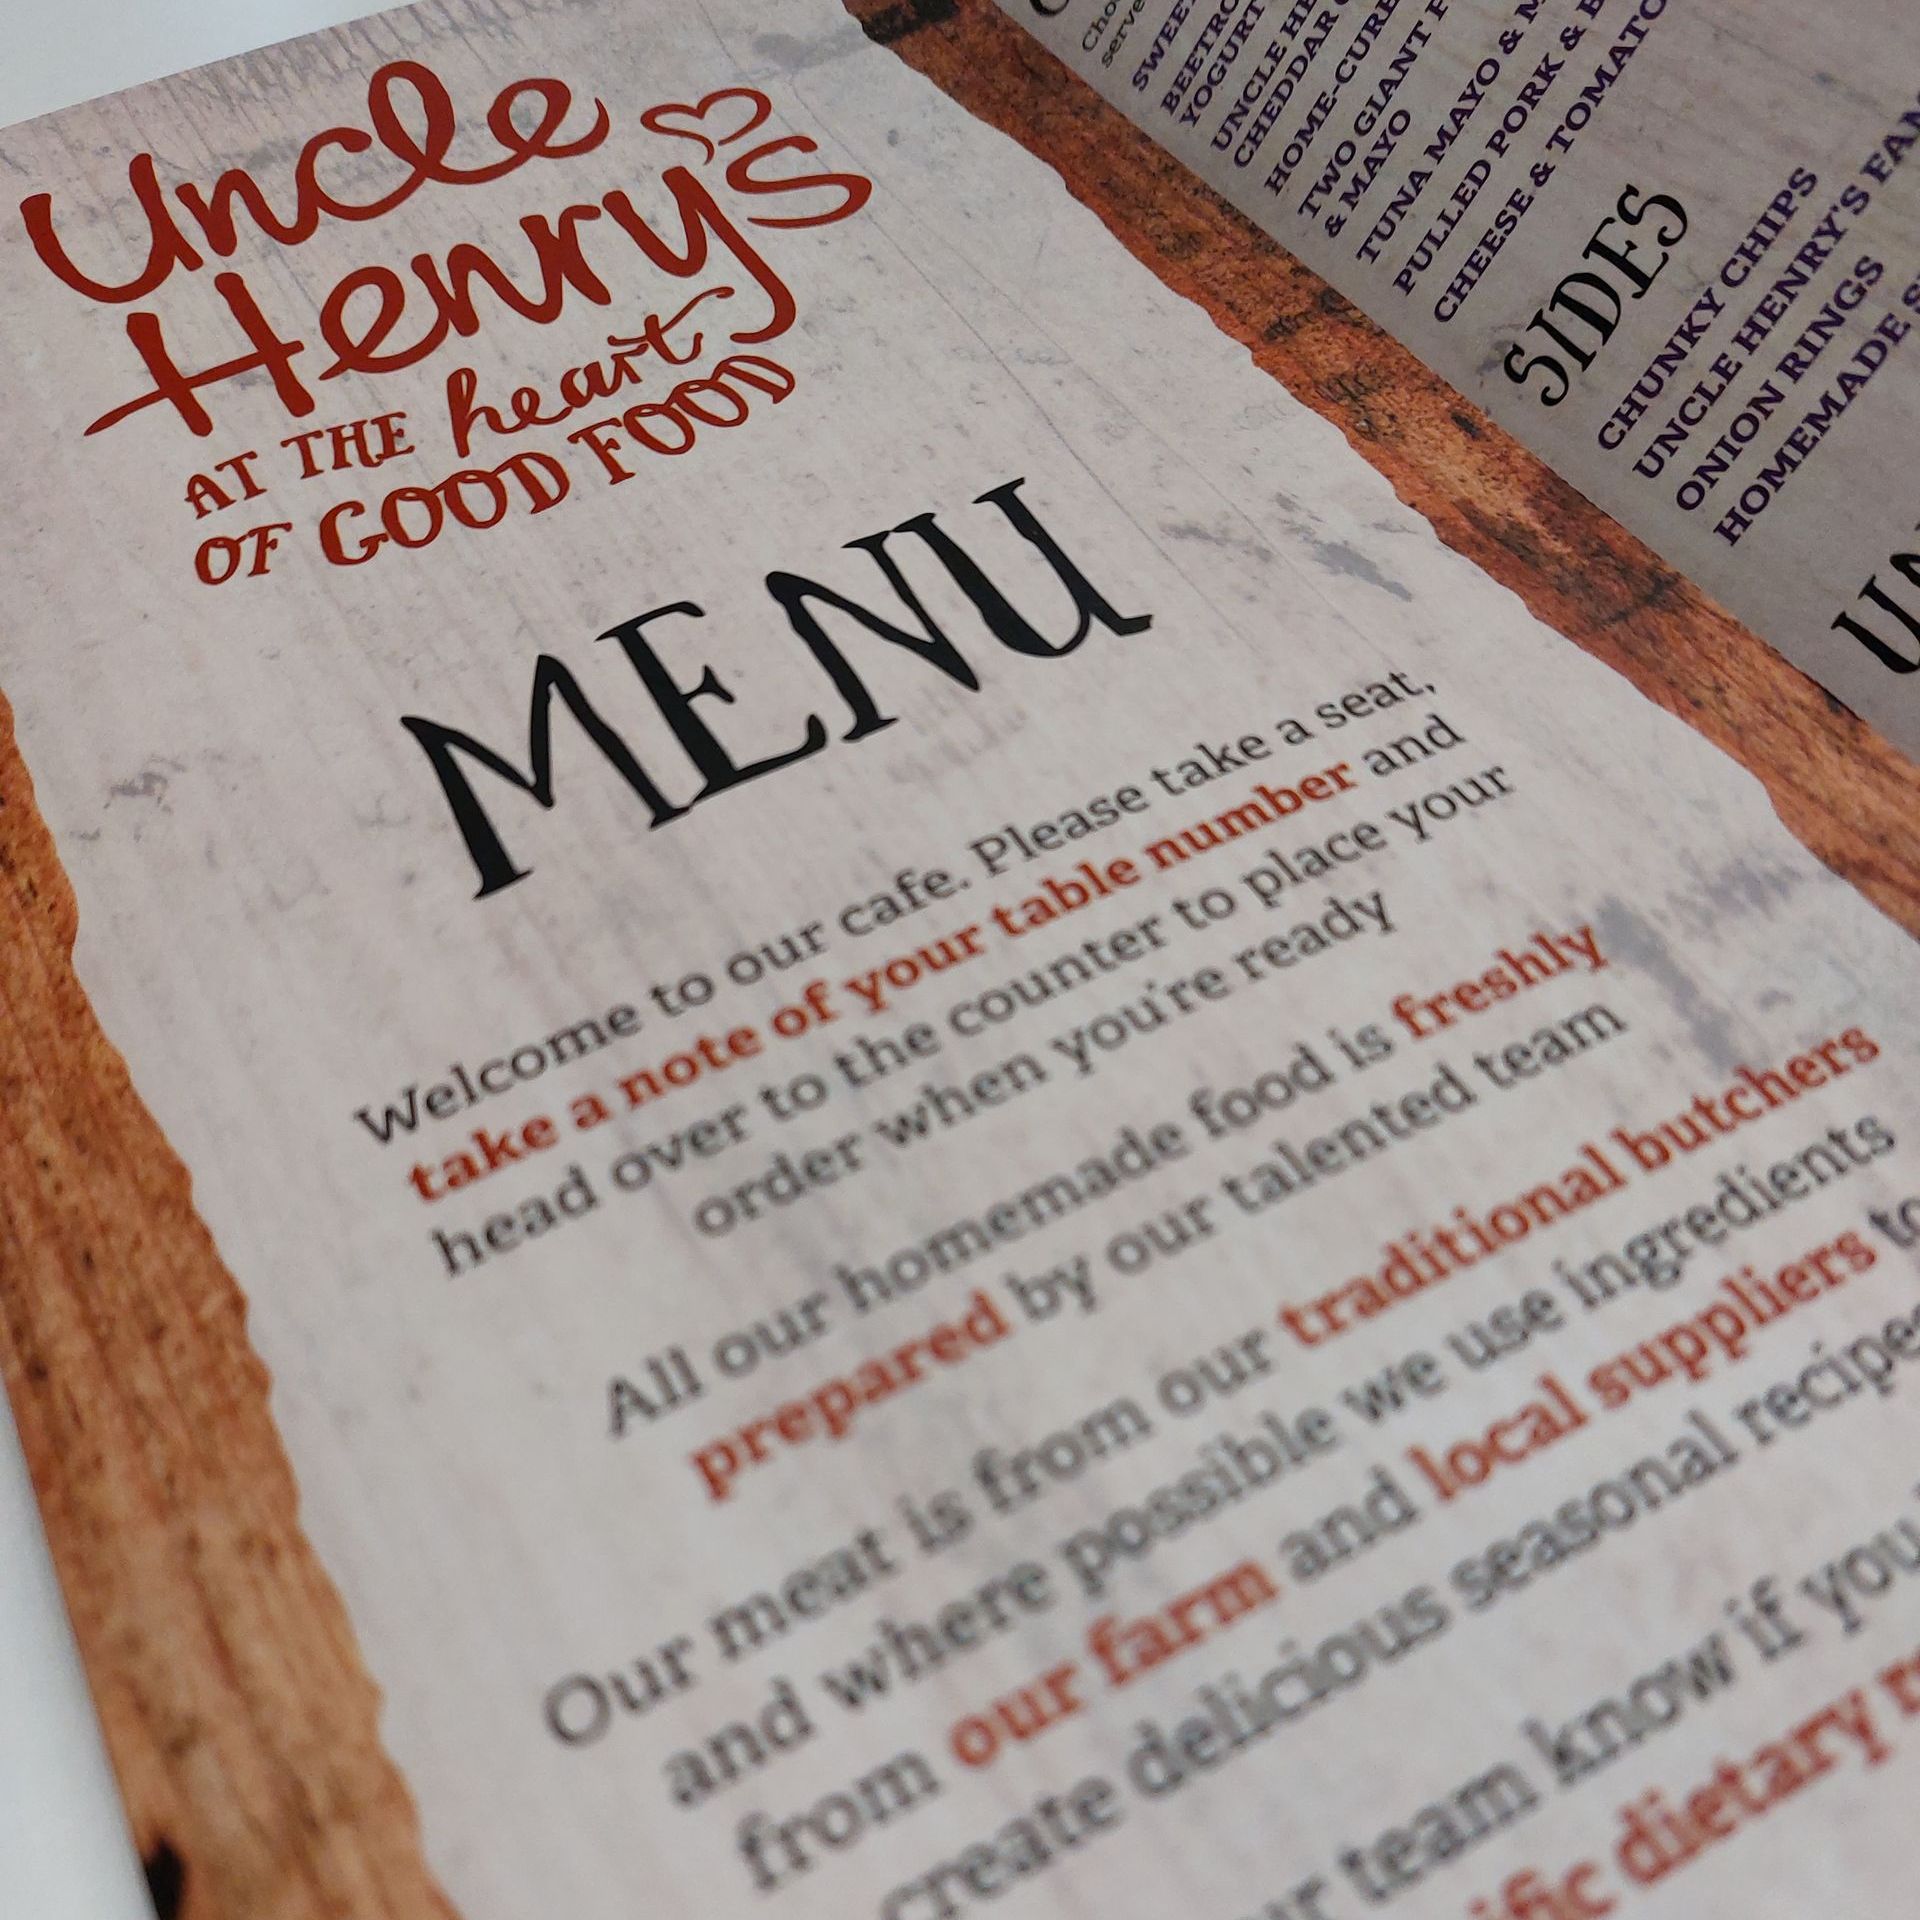 Uncle
Henry's
AT THE heart
OF GOOD FOOD
MENU
Welcome to our cafe. Please take a seat,
take a note of your table number and
head over to the counter to place your
order when you're ready
All our homemade food is freshly
prepared by our talented team
Our meat is from our traditional butchers
and where possible we use ingredients
from our farm and local suppliers to
create delicious seasonal recipes
team know if you
dietary
BEETRO
YOGURT
UNCLE HE
CHEDDAR
HOME-CURE
TWO GIANT
& MAYO
TUNA MAYO & M
PULLED PORK & B
CHEESE & TOMATO
SIDES
CHUNKY CHIPS
UNCLE HENRY'S FAM
ONION RINGS
HOMEMADE S